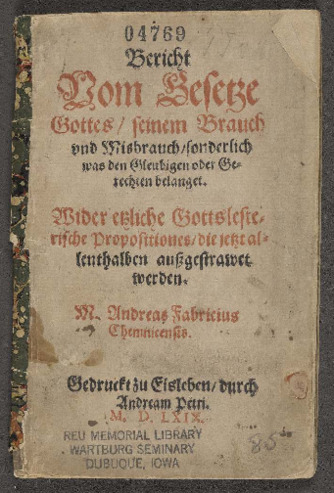 04769
Bericht
Vom Gesetze
Gottes / seinem Brauch
vnd Misbrauch / sonderlich
was den Gleubigen oder Ge-
rechten belanget.
Wider etzliche Gottsleste-
rische Propositiones / die jetzt al-
lenthalben außgestrawet
werden.
M. Andreas Fabricius
Chemnicensis.
Gedruckt zu Eisleben / durch
Andream Petri.
M. D. LXIX.
REU MEMORIAL LIBRARY
WARTBURG SEMINARY
DUBUQUE, IOWA